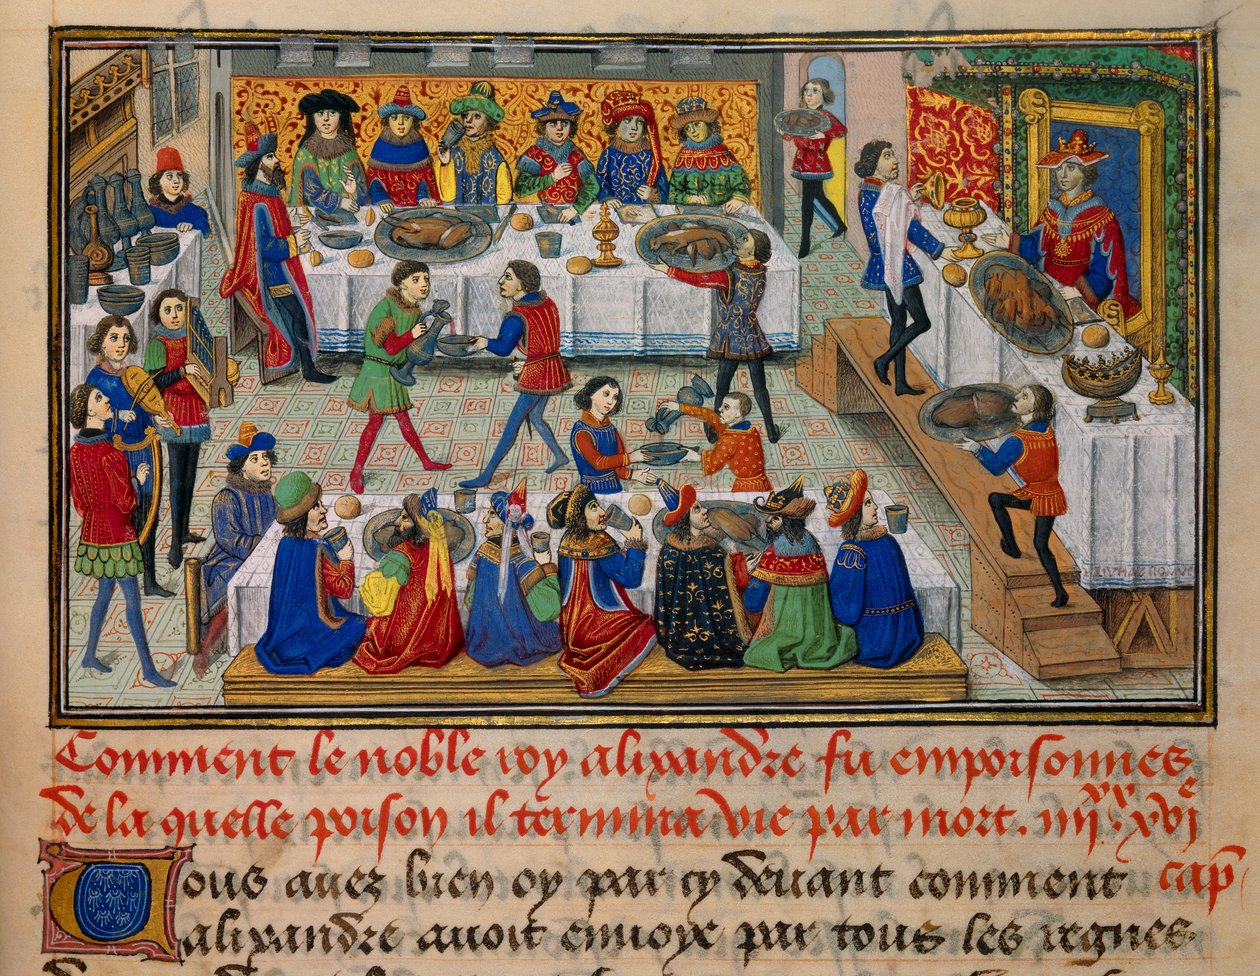 Comment le noble roy alixandre fu empoisonnes
de la quelle poison il termina vie par mort. iiijxx.xvje
cap
Vous auez bien oy par cy deuant comment
alixandre auoit enuoye par tous les regnes.